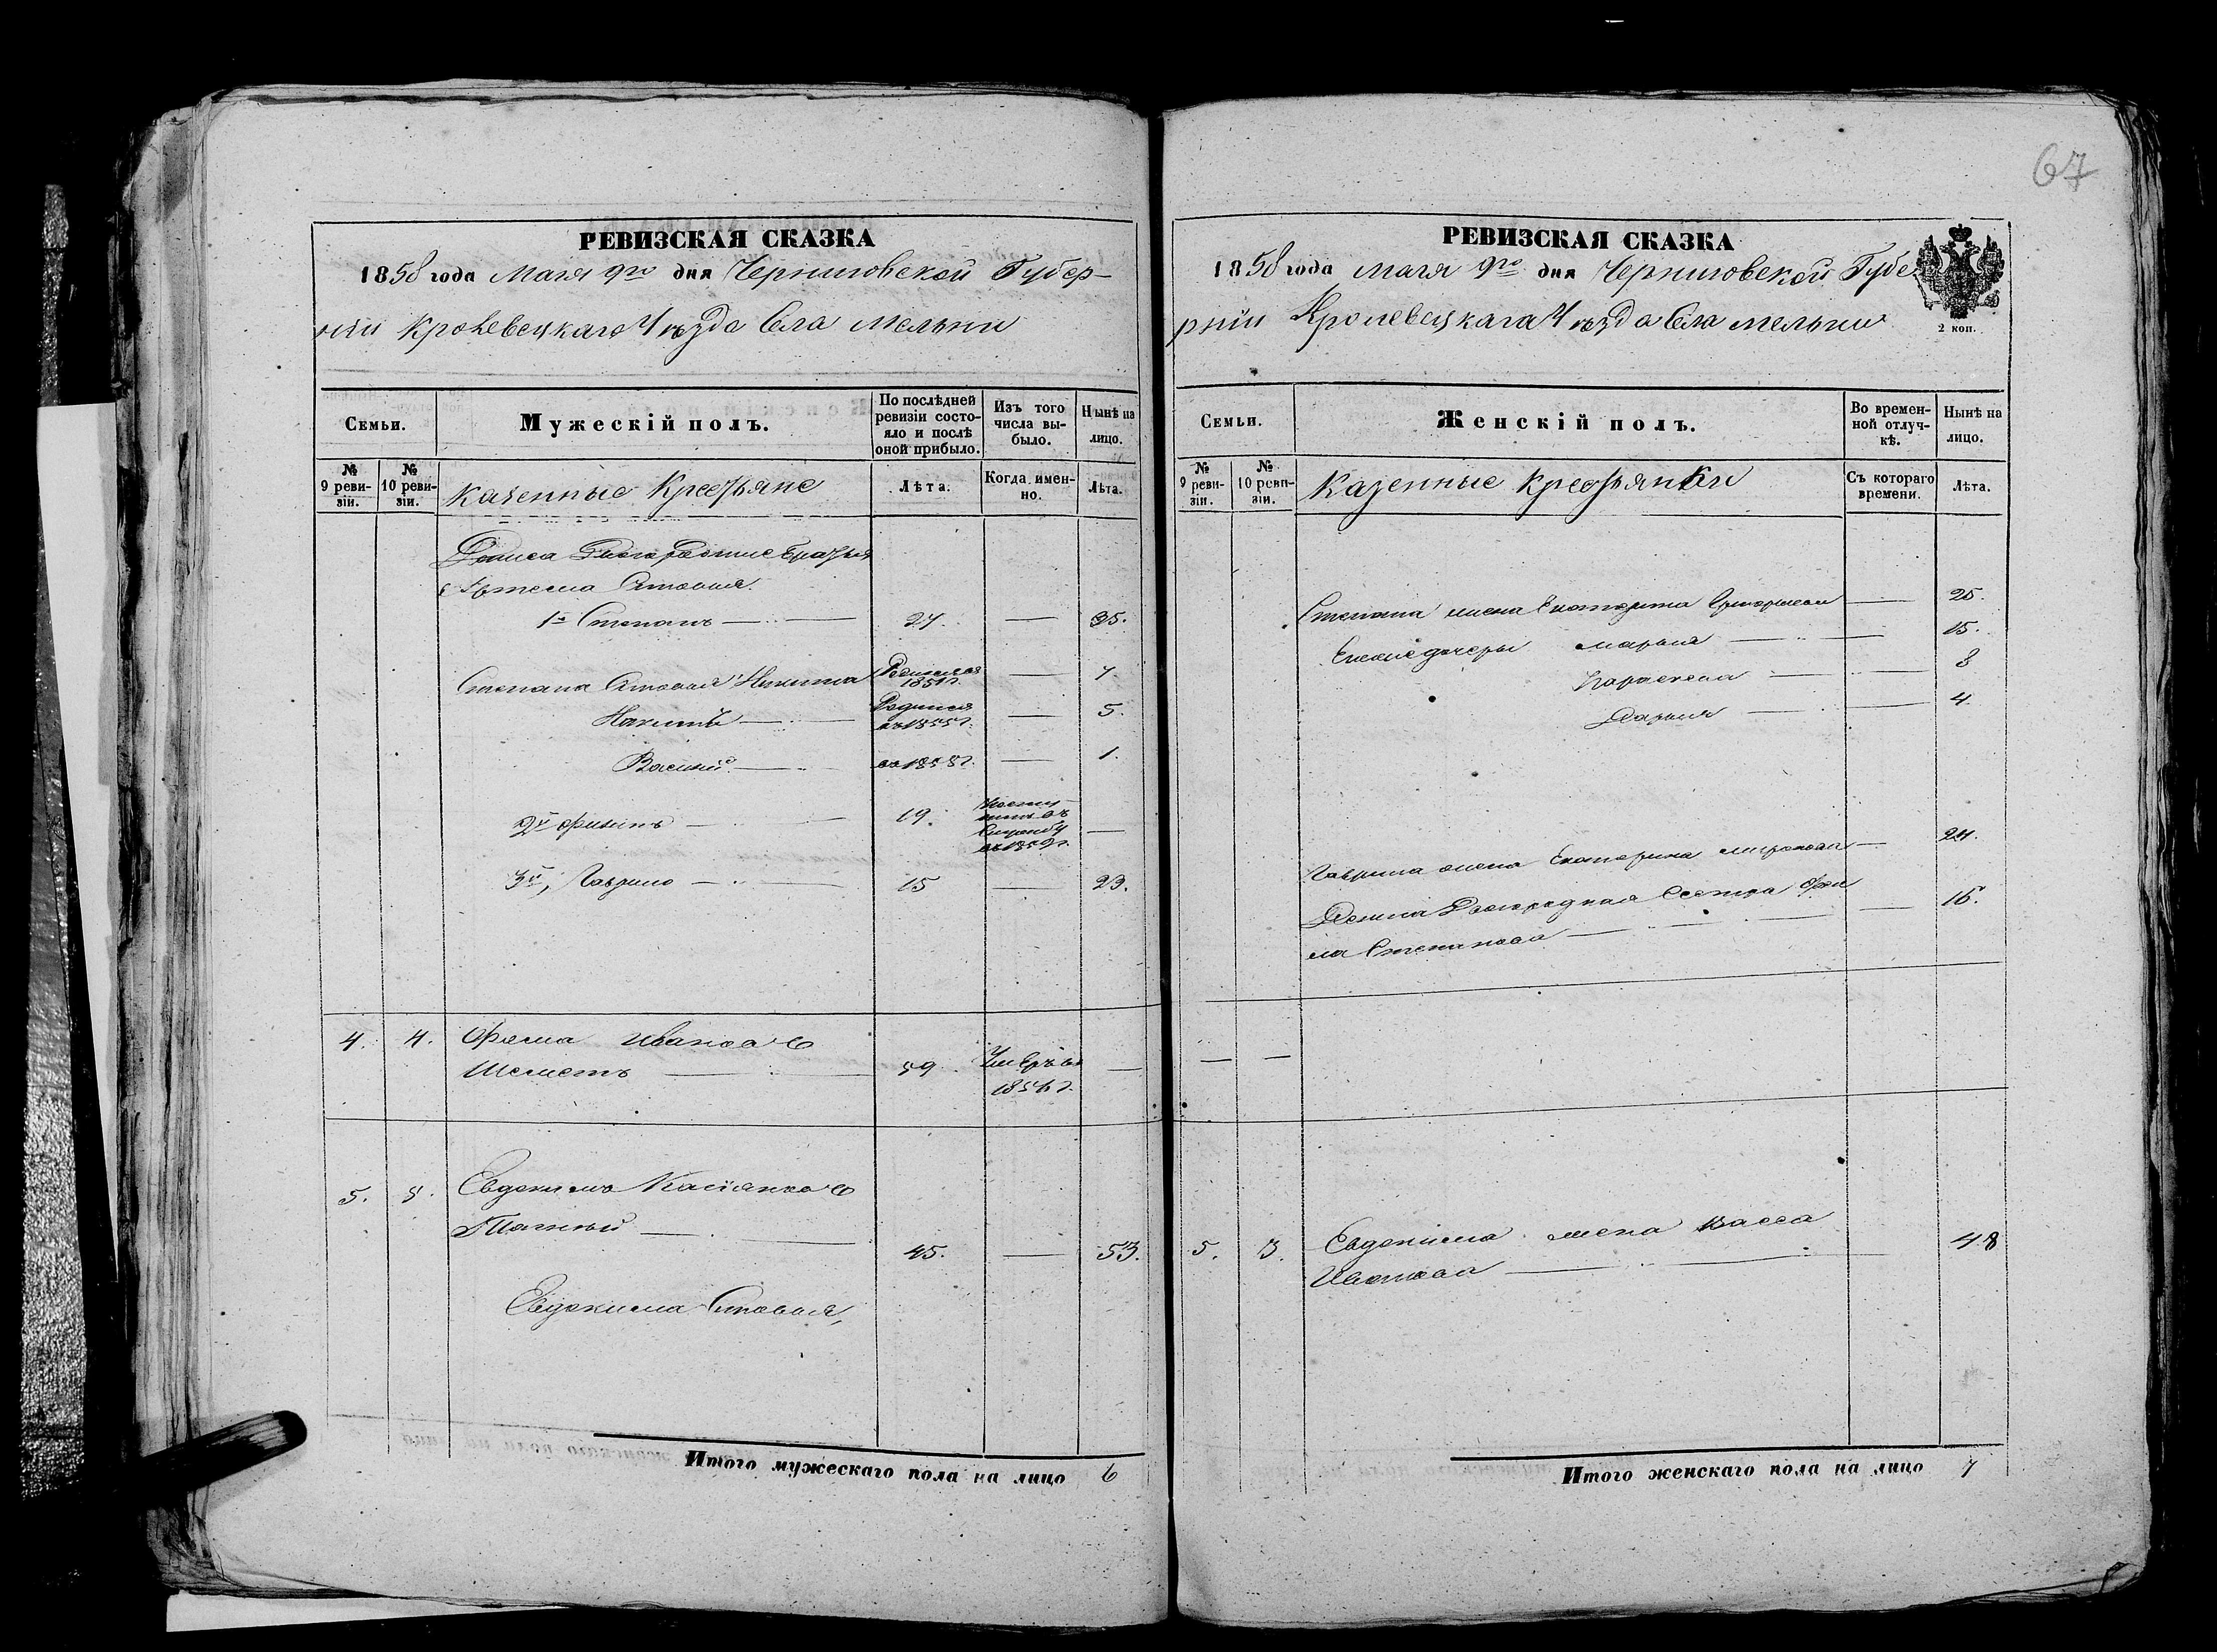 67
РЕВИЗСКАЯ СКАЗКА
1858 года Мая 9го дня Черниговской Губер-
ніи Кролевецкаго Уѣзда Села Мельни
Семьи.
Мужескій полъ.
По послѣдней ревизіи состо-яло и послѣ оной прибыло.
Изъ того числа вы-было.
Нынѣ на лицо.
№ 9 реви-зіи.
№ 10 реви-зіи.
Казенные Крестьяне
Лѣта.
Когда имен-но.
Лѣта.
Дениса Двоюродные братья
Артема Сыновья
1й Степанъ 27. 35.
Степана Сыновья Никита 7.
5.
Василій въ 1858 г. 1.
2й Филипъ 19.
3й, Гаврило 15 23.
4. 4. Фома Ивановъ
Шеметъ 59 Умеръ въ
185 г.
5. 5. Евдокимъ Касіяновъ
45. 53.
Евдокима Сыновья,
Итого мужескаго пола на лицо 6
РЕВИЗСКАЯ СКАЗКА
1858 года Мая 9го дня Черниговской Губе
рніи Кролевецкаго Уѣзда Села Мельни
2 коп.
Семьи.
Женскій полъ.
Во времен-ной отлуч-кѣ.
Нынѣ на лицо.
№ 9 реви-зіи.
№ 10 реви-зіи.
Казенные Крестьянки
Съ котораго времени.
Лѣта.
Степана жена Екатерина Григорьева 25.
Ихние дочеры Марья 15.
Параскева 8
Дарья 4.
Гаврила жена Екатерина Миронова 24.
Дениса Двоюродная Сестра 15.
Степанова
5. 5. Евдокима жена Васса 48
Иванова
Итого женскаго пола на лицо 7